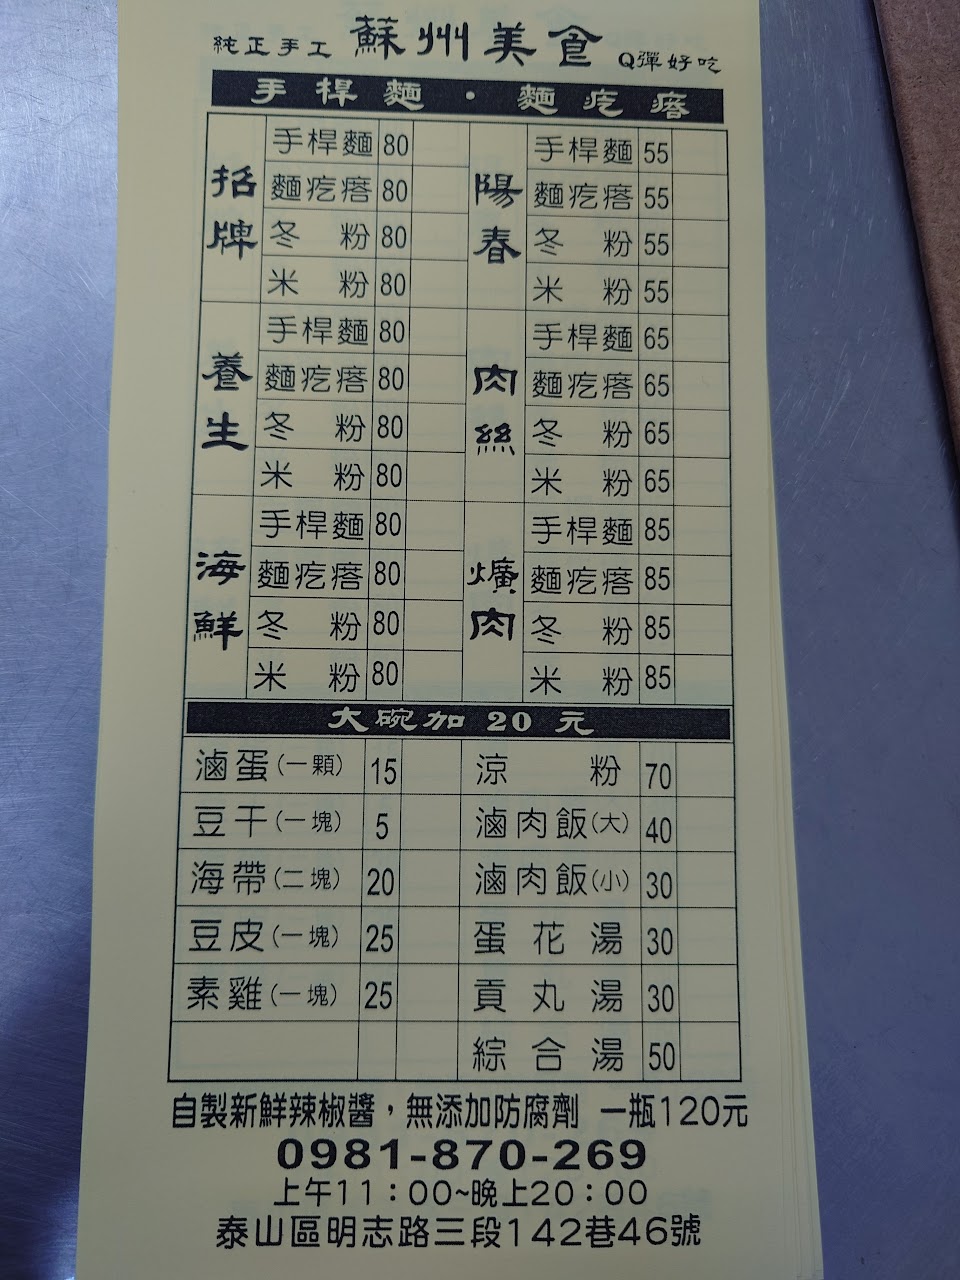 純正手工 蘇州美食 Q彈好吃
手桿麵・麵疙瘩
招牌
手桿麵 80
麵疙瘩 80
冬粉 80
米粉 80
陽春
手桿麵 55
麵疙瘩 55
冬粉 55
米粉 55
養生
手桿麵 80
麵疙瘩 80
冬粉 80
米粉 80
肉絲
手桿麵 65
麵疙瘩 65
冬粉 65
米粉 65
海鮮
手桿麵 80
麵疙瘩 80
冬粉 80
米粉 80
爌肉
手桿麵 85
麵疙瘩 85
冬粉 85
米粉 85
大碗加 20 元
滷蛋(一顆) 15 涼粉 70
豆干(一塊) 5 滷肉飯(大) 40
海帶(二塊) 20 滷肉飯(小) 30
豆皮(一塊) 25 蛋花湯 30
素雞(一塊) 25 貢丸湯 30
綜合湯 50
自製新鮮辣椒醬，無添加防腐劑 一瓶120元
0981-870-269
上午11：00~晚上20：00
泰山區明志路三段142巷46號